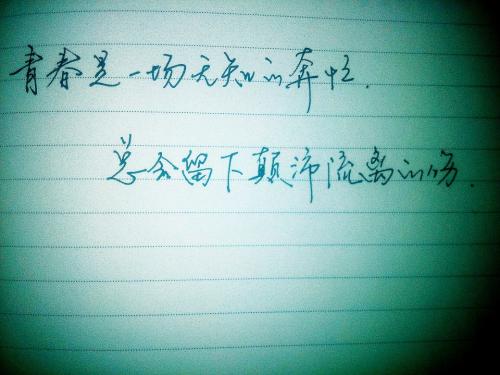 青春是一场无知的奔忙.
总会留下颠沛流离的伤.